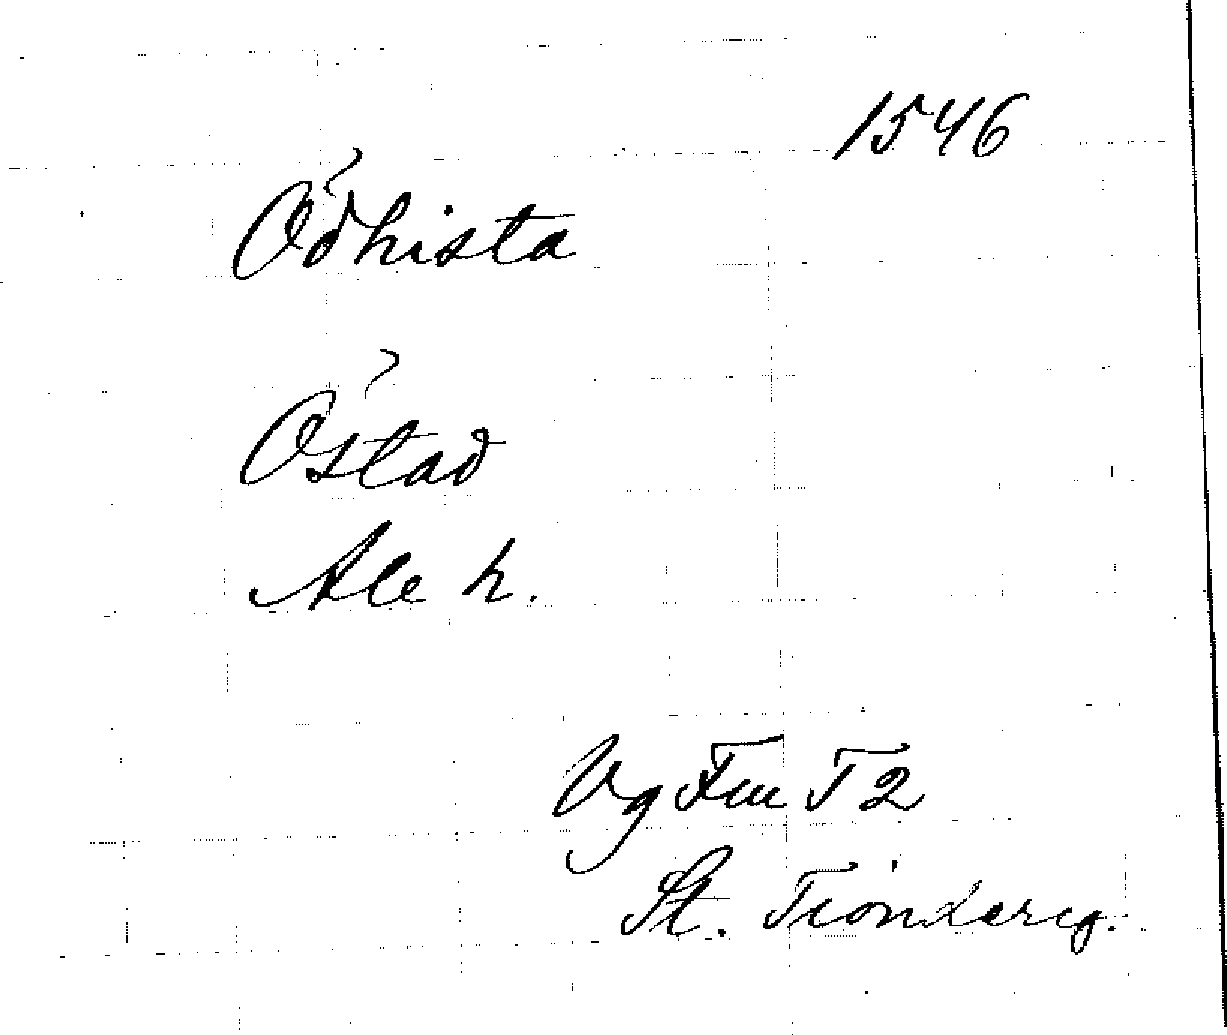 1546
Ödhista
Östad
Ale h.
Vg Fm T2
St. Tiondereg.